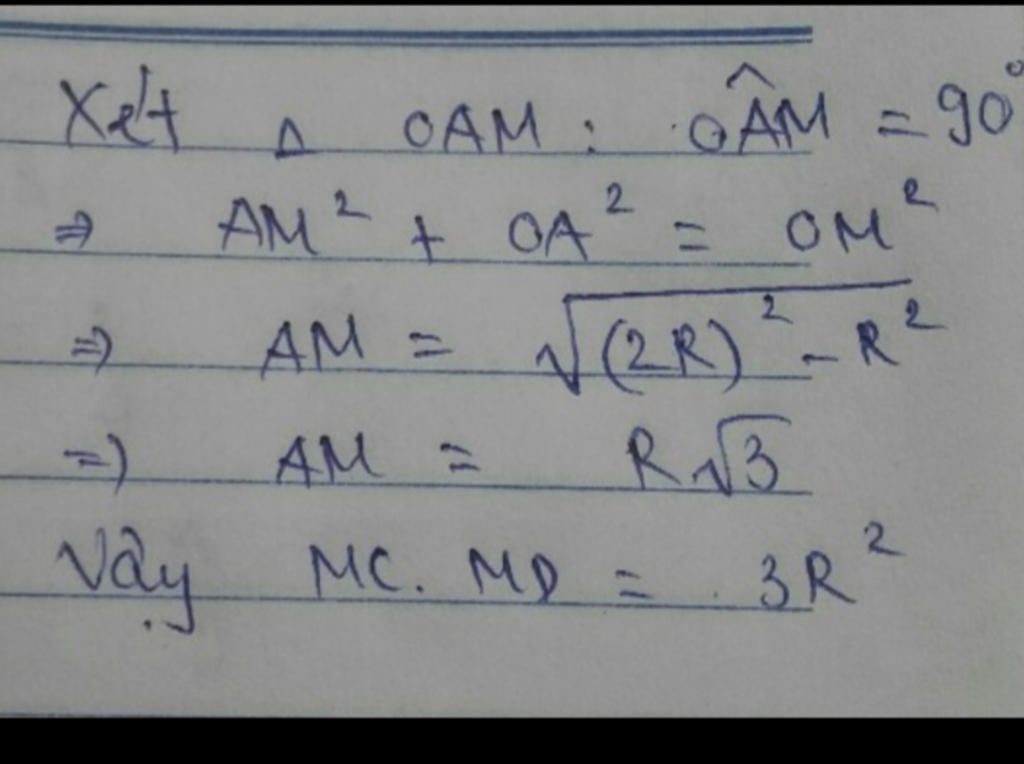 Xét Δ OAM : OÂM = 90°
⇒ AM² + OA² = OM²
⇒ AM = √((2R)² - R²)
⇒ AM = R√3
Vậy MC. MD = 3R²